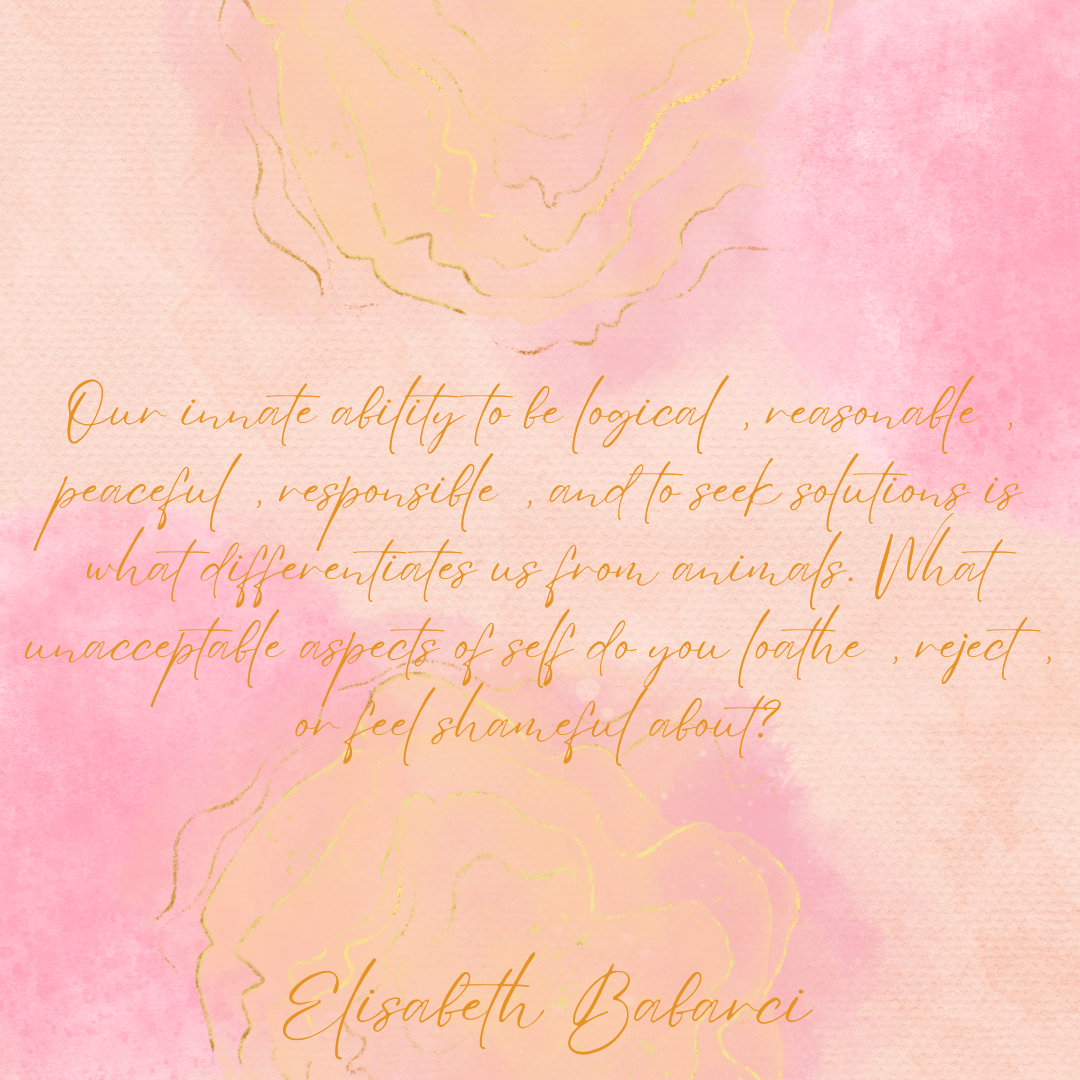 Our innate ability to be logical , reasonable ,
peaceful , responsible , and to seek solutions is
what differentiates us from animals. What
unacceptable aspects of self do you loathe , reject ,
or feel shameful about?
Elisabeth Babarci